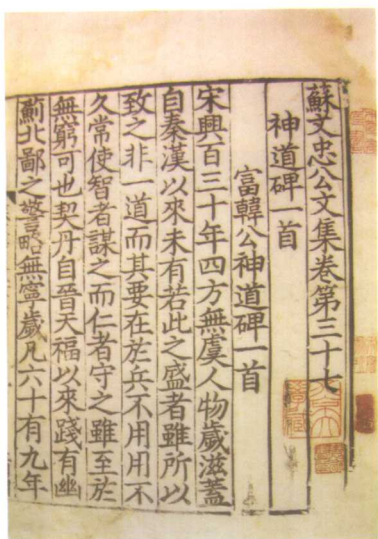 蘇文忠公文集卷第三十七
神道碑一首
富韓公神道碑一首
宋興百三十年四方無虞人物歲滋蓋
自秦漢以來未有若此之盛者雖所以
致之非一道而其要在於兵不用用不
久常使智者謀之而仁者守之雖至於
無窮可也契丹自晉天福以來踐有幽
薊北鄙之警略無寧歲凡六十有九年